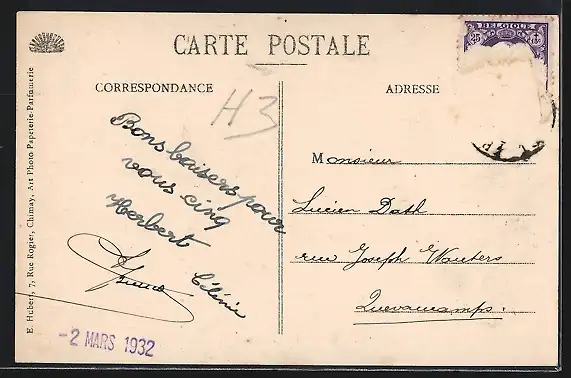 CARTE POSTALE
BELGIQUE
25
CORRESPONDANCE
ADRESSE
H3
Bons baisers pour
vous cinq
Herbert
Célénie
Monsieur
Lucien Dath
rue Joseph Wauters
Quevaucamps.
-2 MARS 1932
E. Hubert, 7, Rue Rogier, Chimay, Art Photo-Papeterie-Parfumerie